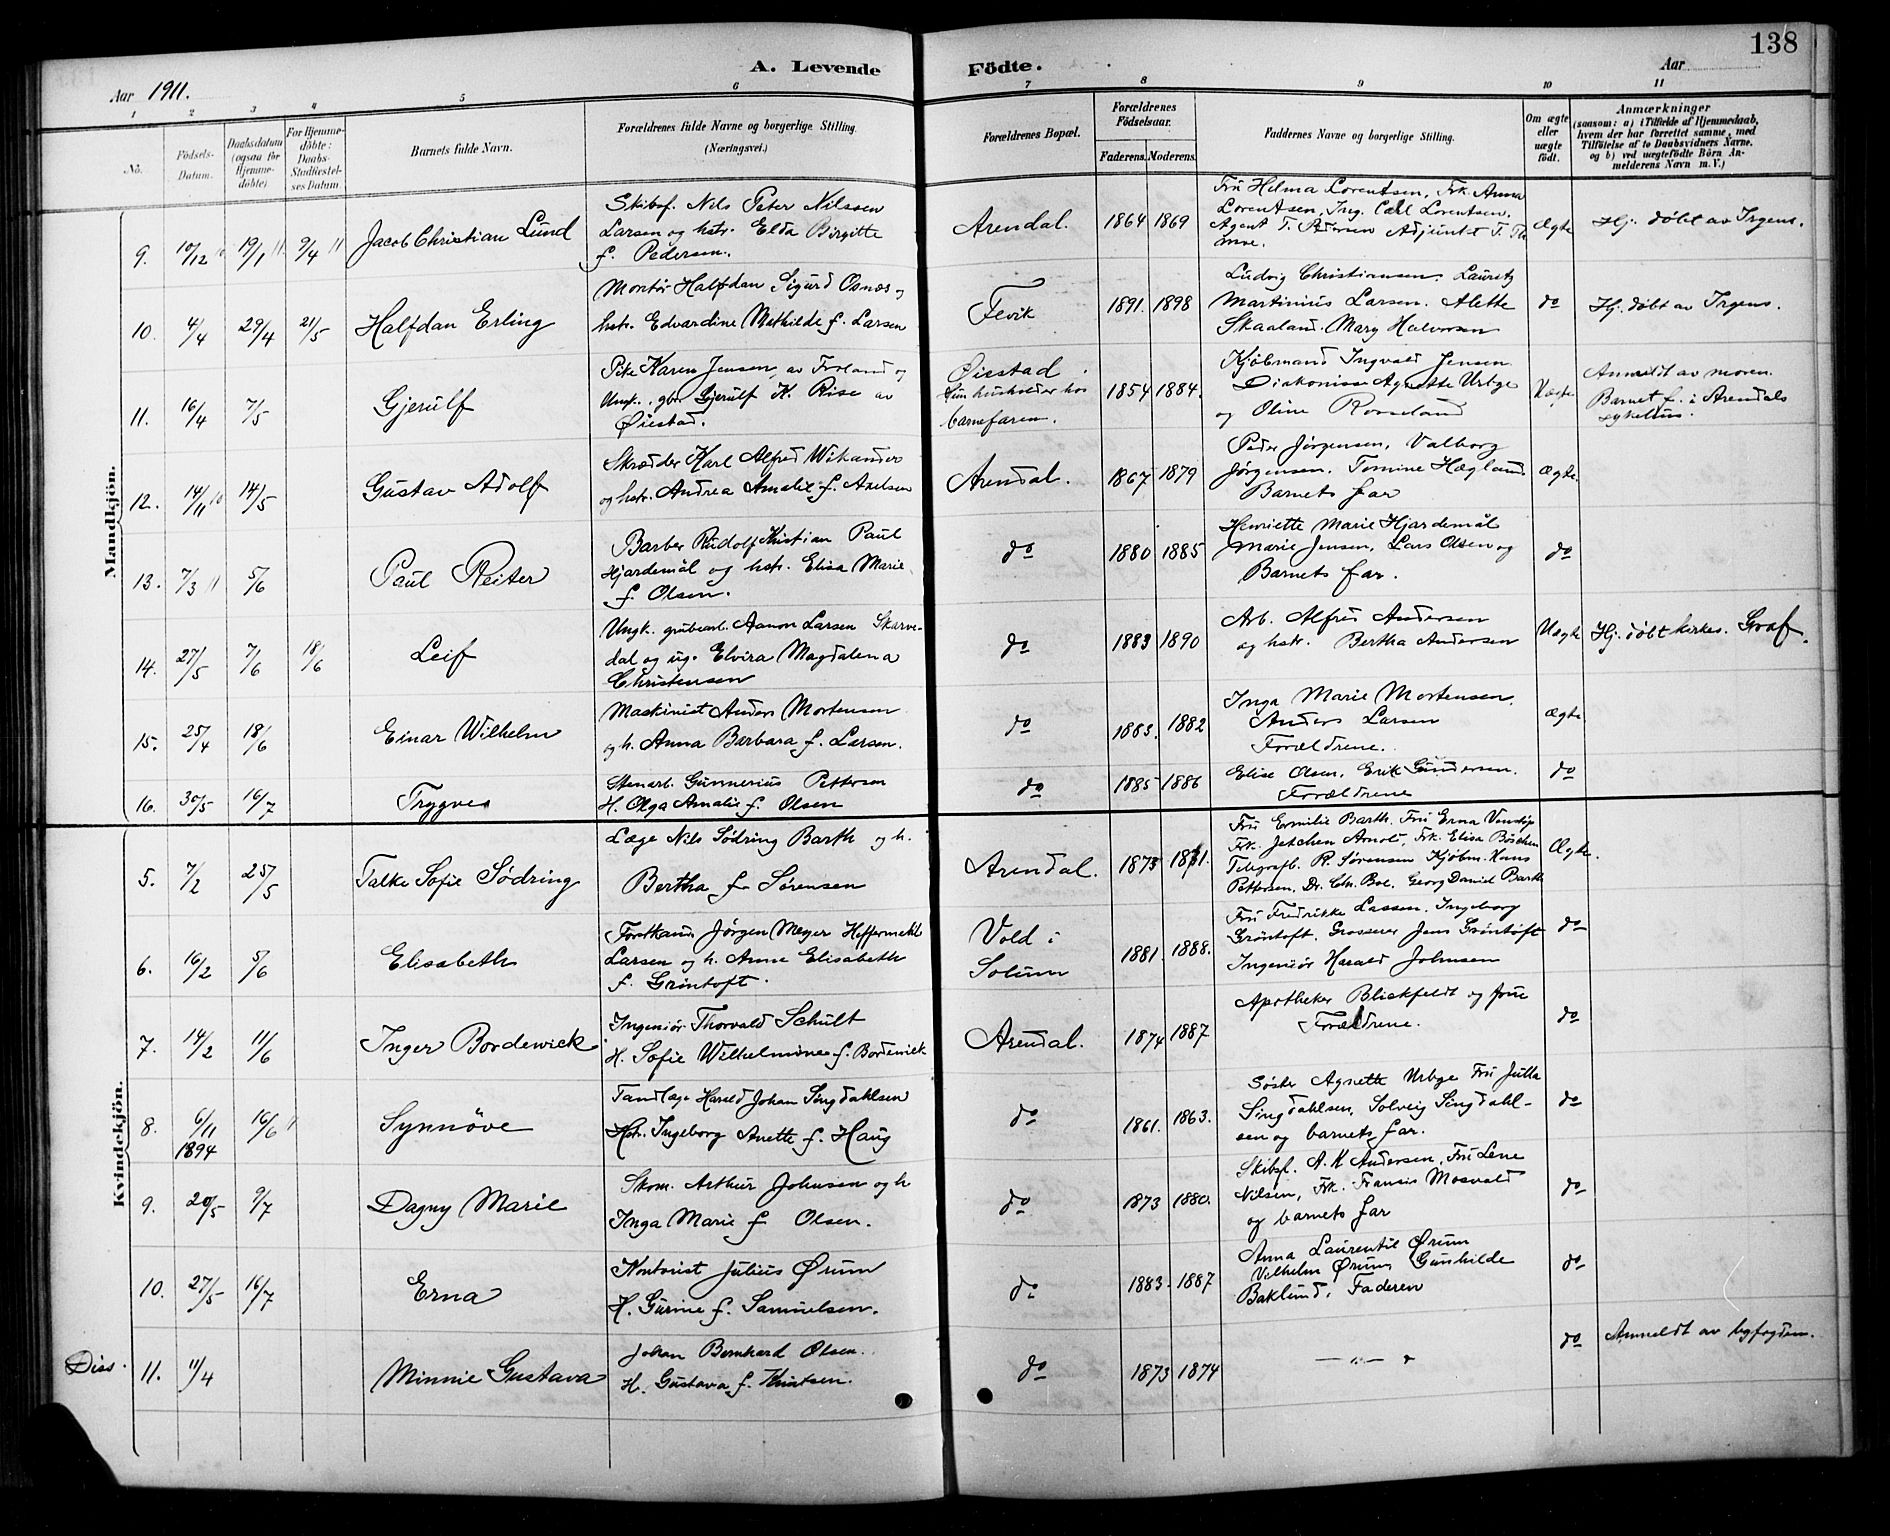 138
A. Levende Födte.
Aar 1911.
Aar
1 2 3 4 5 6 7 8 9 10 11
No.
Födsels-Datum.
Daabsdatum (ogsaa for Hjemmedöbte)
For Hjemmedöbte: Daabs-Stadfæstelses Datum
Barnets fulde Navn.
Forældrenes fulde Navne og borgerlige Stilling. (Næringsvei.)
Forældrenes Bopæl.
Forældrenes Födselsaar.
Faderens. Moderens.
Faddernes Navne og borgerlige Stilling.
Om ægte eller uægte födt.
Anmærkninger (saasom: a) i Tilfælde af Hjemmedaab, hvem der har forrettet samme, med Tilföielse af to Daabsvidners Navne, og b) ved uægtefödte Börn Anmelderens Navn m. V.)
Mandkjön.
9. 10/12 10 19/1 11 9/4 11 Jacob Christian Lund
Skibsf. Nils Peter Nilssen
Larsen og hstr. Elda Birgitte
f. Pedersen.
Arendal. 1864 1869
Fru Helma Lorentsen, Frk. Anna
Lorentsen, Ing. Carl Lorentsen,
Agent T. Pedersen Adjunkt T.
Ægte Hj. döbt av Irgens.
10. 4/4 29/4 21/5 Halfdan Erling
Montör Halfdan Sigurd Osnæs og
hstr. Edvardine Mathilde f. Larsen
Fevik 1891. 1898
Ludvig Christiansen. Lauretz
Martinius Larsen. Alette
Skaaland. Mary Halvorsen
do Hj. döbt av Irgens.
11. 16/4 7/5 Gjerulf
Pike Karen Jensen av Froland og
Ungk. gbr Gjerulf K. Rise av
Øiestad.
Øiestad
hun husholder hos
barnefaren.
1854 1884.
Kjöbmand Ingvald Jensen
Diakonisse Agnette Urbye
og Oline Rosseland
Uægte
Anmeldt av moren.
Barnet f. i Arendals
sykehus.
12. 14/11 10 14/5 Gustav Adolf
Skrædder Karl Alfred Wikander
og hstr. Andrea Amalie f. Axelsen
Arendal. 1867 1879
Peder Jørgensen, Valborg
Jørgensen. Tomine Hægland
Barnets far
Ægte.
13. 7/3 11 5/6 Paul Reiter
Barber Rudolf Kristian Paul
Hjardemål og hstr. Elisa Marie
f. Olsen.
do 1880 1885
Henriette Marie Hjardemål
Marie Jensen, Lars Olsen og
Barnets far.
do
14. 27/5 7/6 18/6 Leif
Ungk. grubearb. Aanon Larsen Skarve-
dal og ug. Elvira Magdalena
Christensen
do 1883 1890
Arb. Alfred Andersen
og hstr. Bertha Andersen
Uægte Hj. döbt kirkes. Graf.
15. 25/4 18/6 Einar Wilhelm
Maskinist Anders Mortensen
og h. Anna Barbara f. Larsen.
do 1883. 1882
Inga Marie Mortensen.
Anders Larsen
Forældrene.
Ægte
16. 30/5 16/7 Trygve
Stenarb. Gunnerius Pettersen
H. Olga Amalie f. Olsen
do 1885 1886
Elise Olsen, Erik Gundersen.
Forældrene
do
Kvindekjön.
5. 7/2 25/5 Talke Sofie Södring
Læge Nils Södring Barth og h.
Bertha f. Sörensen
Arendal. 1873 1881.
Fru Emilie Barth. Fru Erna
Frk. Jetchen Arnold, Frk. Elisa Böschen
Telegrafb. R. Sörensen Kjöbm. Hans
Pettersen, Dr. Chr. Boe. Georg Daniel Barth
Ægte.
6. 16/2 5/6 Elisabeth
Forstkand. Jörgen Meyer Heffermehl
Larsen og h. Anne Elisabeth
f. Gröntoft.
Vold i
Solum
1881. 1888.
Fru Fredrikke Lassen. Ingeborg
Gröntoft. Grosserer Jens Gröntoft
Ingeniör Harald Johnsen
do
7. 14/2 11/6 Inger Bordewick
Ingeniör Thorvald Schult
H. Sofie Wilhelmine f. Bordewick
Arendal. 1874 1887
Apotheker Blickfeldt og frue
Forældrene.
do
8. 6/11 1894 16/6 11 Synnöve
Tandlæge Harald Johan Singdahlsen
Hstr. Ingeborg Anette f. Haug
do 1861. 1863.
Söster Agnette Urbye Fru Julla
Singdahlsen, Solveig Singdahl-
sen og barnets far.
do
9. 20/5 9/7 Dagny Marie
Skom. Arthur Johnsen og h
Inga Marie f. Olsen.
do 1873 1880.
Skibsf. A. M Andersen, Fru Lene
Nilsen, Frk. Fransis Mosvald
og barnets far
do
10. 27/5 16/7 Erna
Kontorist Julius Ørum
H. Gurine f. Samuelsen.
do 1883. 1887
Anna Laurentil Ørum
Vilhelm Ørum, Gunhilde
Baklund, Faderen
do
Diss. 11. 11/4 Minnie Gustava
Johan Bernhard Olsen.
H. Gustava f. Knutsen.
do 1873 1874
— „ — „
do Anmeldt av byfogden.